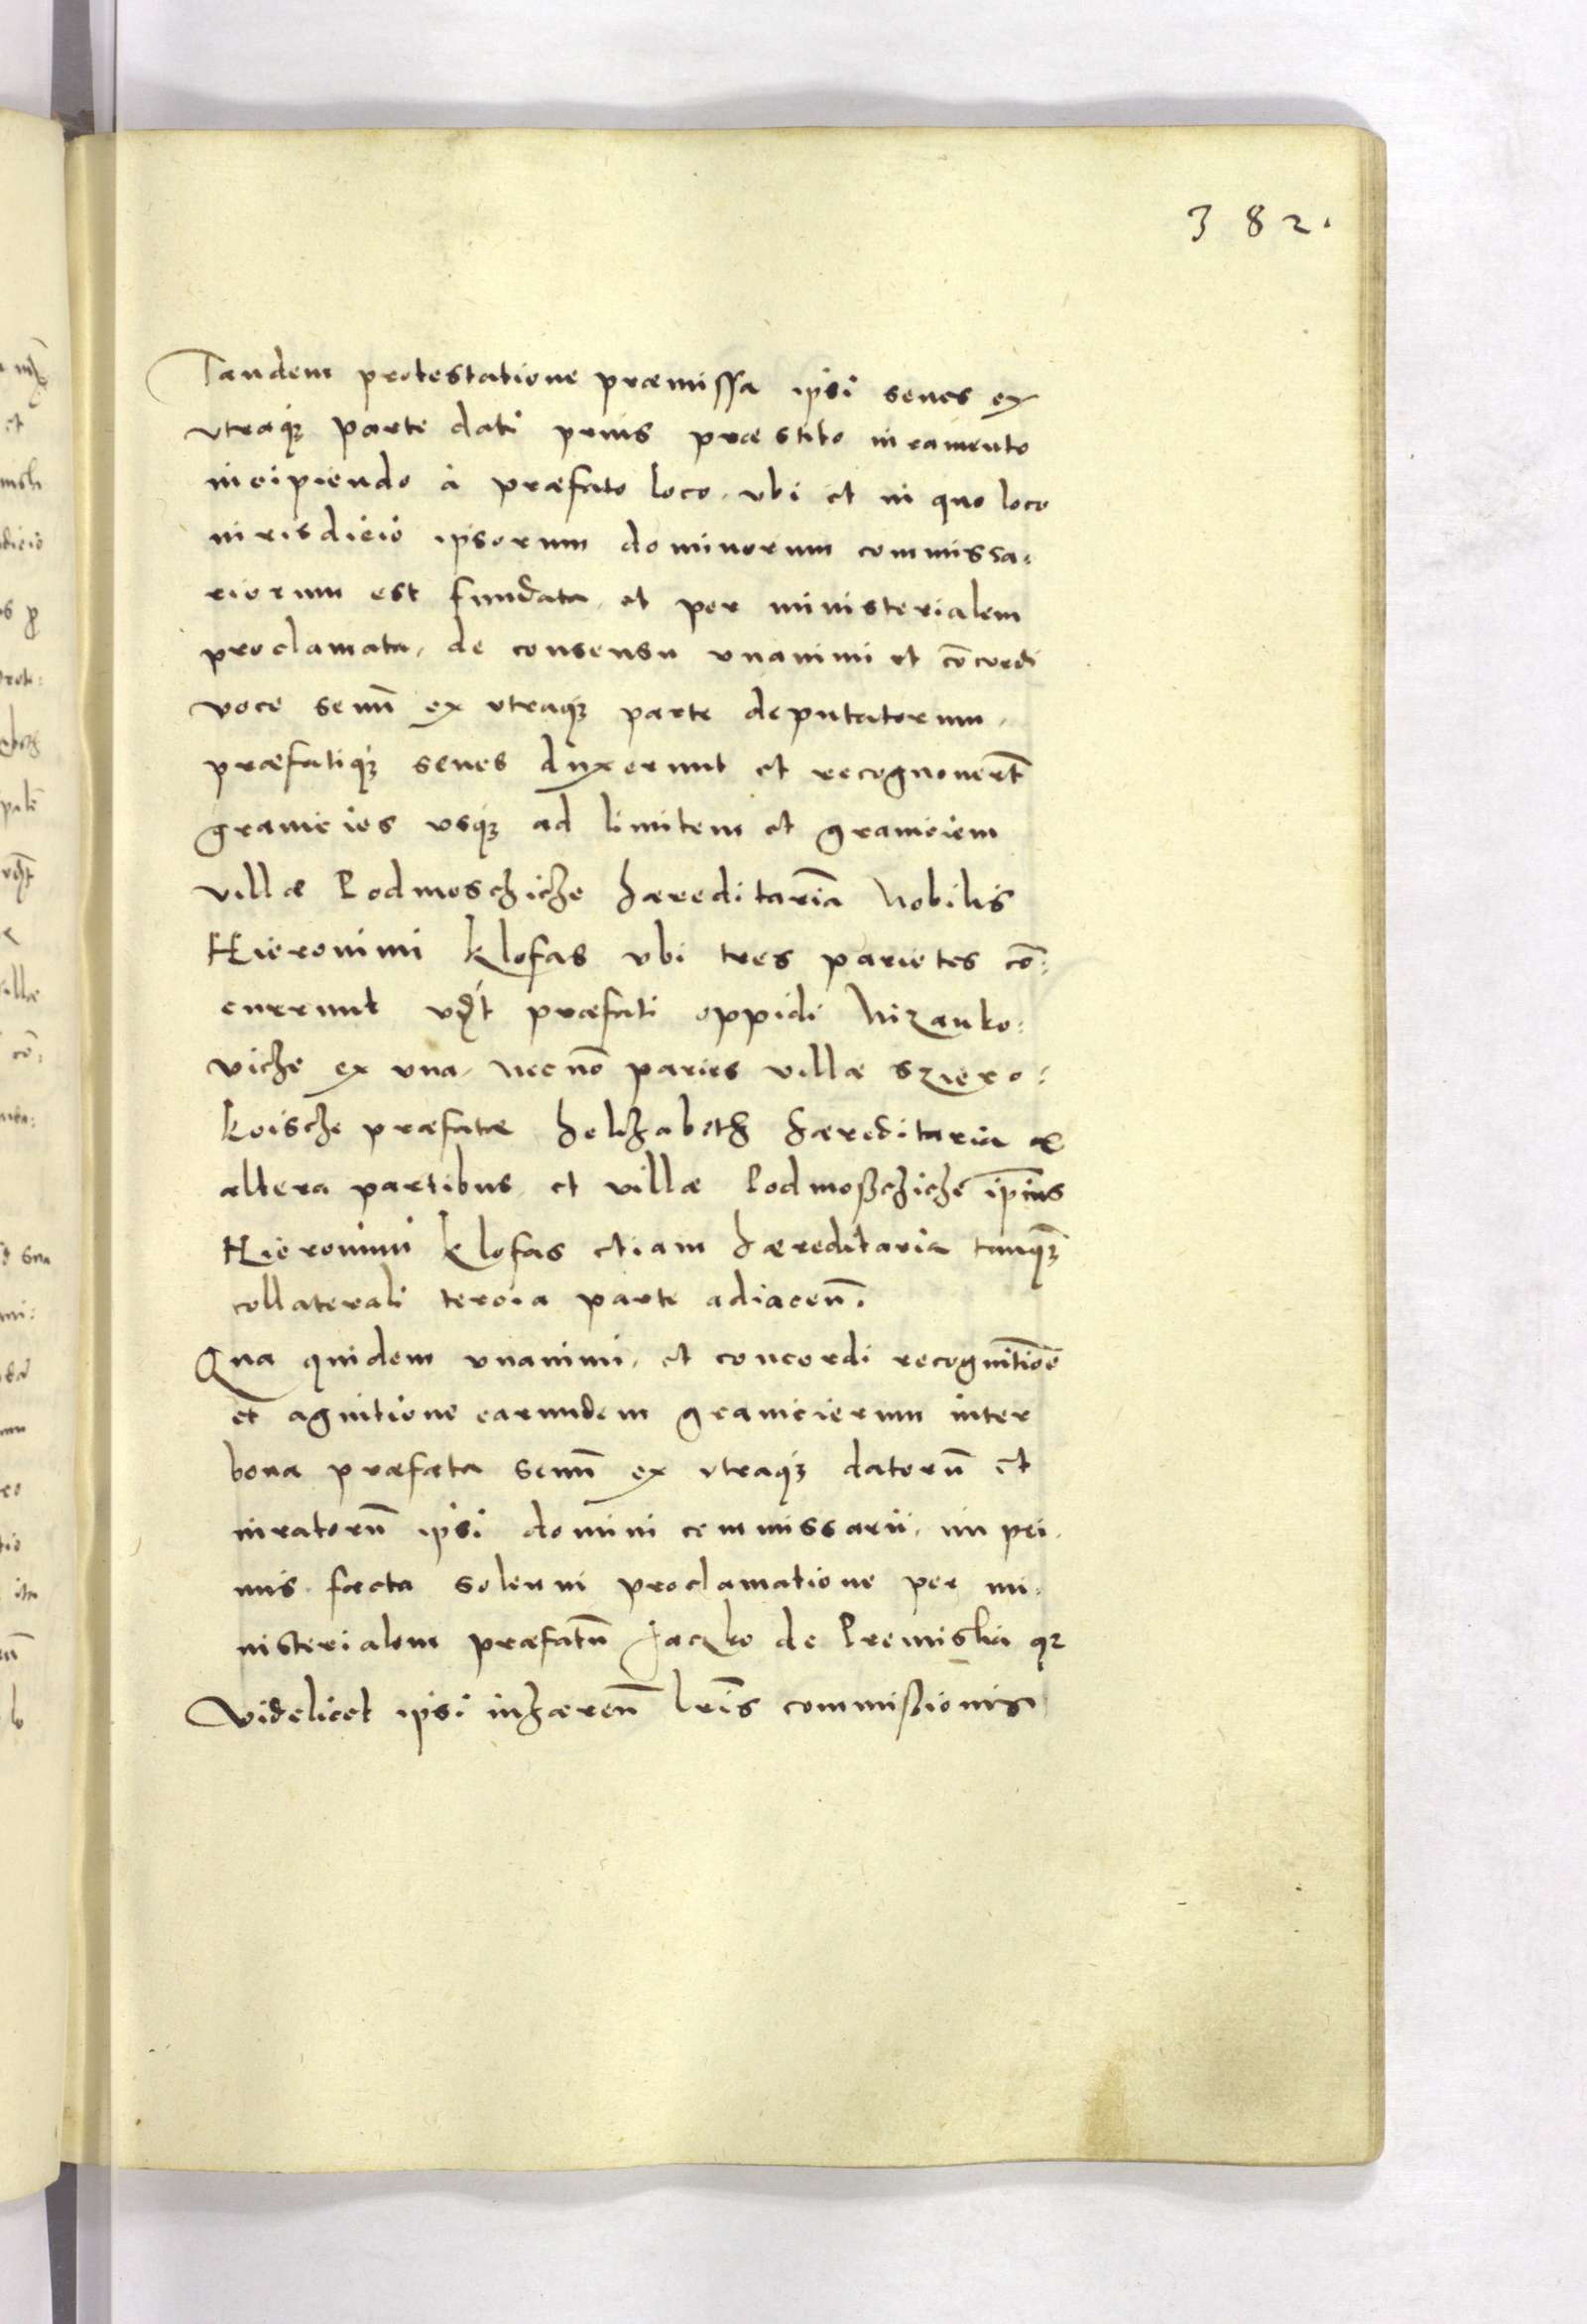 382.
Tandem protestatione præmissa ipsi senes ex
vtraqꝫ parte dati prius præstito iuramento
incipiendo à præfato loco, vbi et in quo loco
iurisdicio ipsorum dominorum commissa:
riorum est fundata, et per ministerialem
proclamata, de consensu vnanimi et cōcordi
voce senū ex vtraqꝫ parte deputatorum,
præfatiqꝫ senes duxerunt et recognouerūt
granicies vsqꝫ ad limitem et graniciem
villæ Podmoschiche hæreditariā Nobilis
Hieronimi Klofas vbi tres parietes cō:
currunt vdꝫt præfati oppidi Nizanko:
viche ex vna, nec nō paries villæ Sziero:
koische præfatæ helizabeth hæreditaria ex
altera partibus, et villæ Podmoßchiche ip̄ius
Hieronimi Klofas etiam hæreditaria tanqꝫ
collaterali tercia parte adiacen̄.
Qua quidem vnanimi, et concordi recognitiōe
et agnitione earundem granicierum inter
bona præfata senū ex vtraqꝫ datorū et
iuratorū ipsi domini commissarii, in pri:
mis facta solenni proclamatione per mi:
nisterialem præfatū Jaczko de Premislia qꝫ
videlicet ipsi inhæren̄ lr̄is commißionis